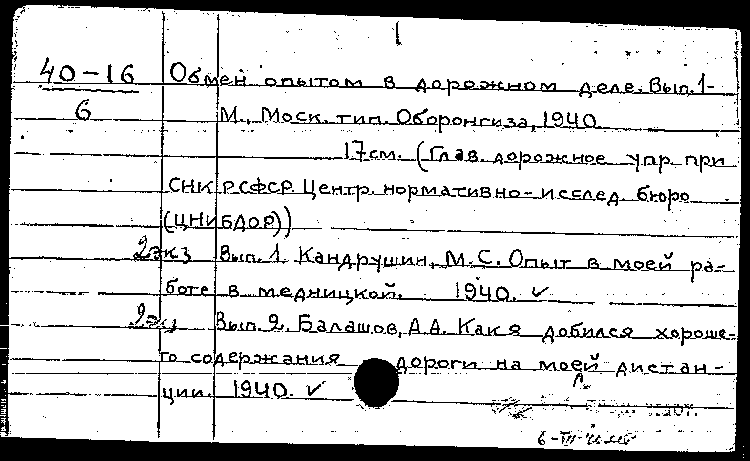 40-16
6
Обмен опытом в дорожном деле. Вып. 1-
М., Моск. тип. Оборонгиза, 1940.
17см. (Глав. дорожное упр. при
СНК РСФСР. Центр. нормативно-исслед. бюро
(ЦНИБДОР))
2экз Вып. 1. Кандрушин, М.С. Опыт в моей ра-
боте в медницкой. 1940. ✓
2экз Вып. 2. Балашов, А.А. Как я добился хороше-
го содержания дороги на моей дистан-
ции. 1940. ✓